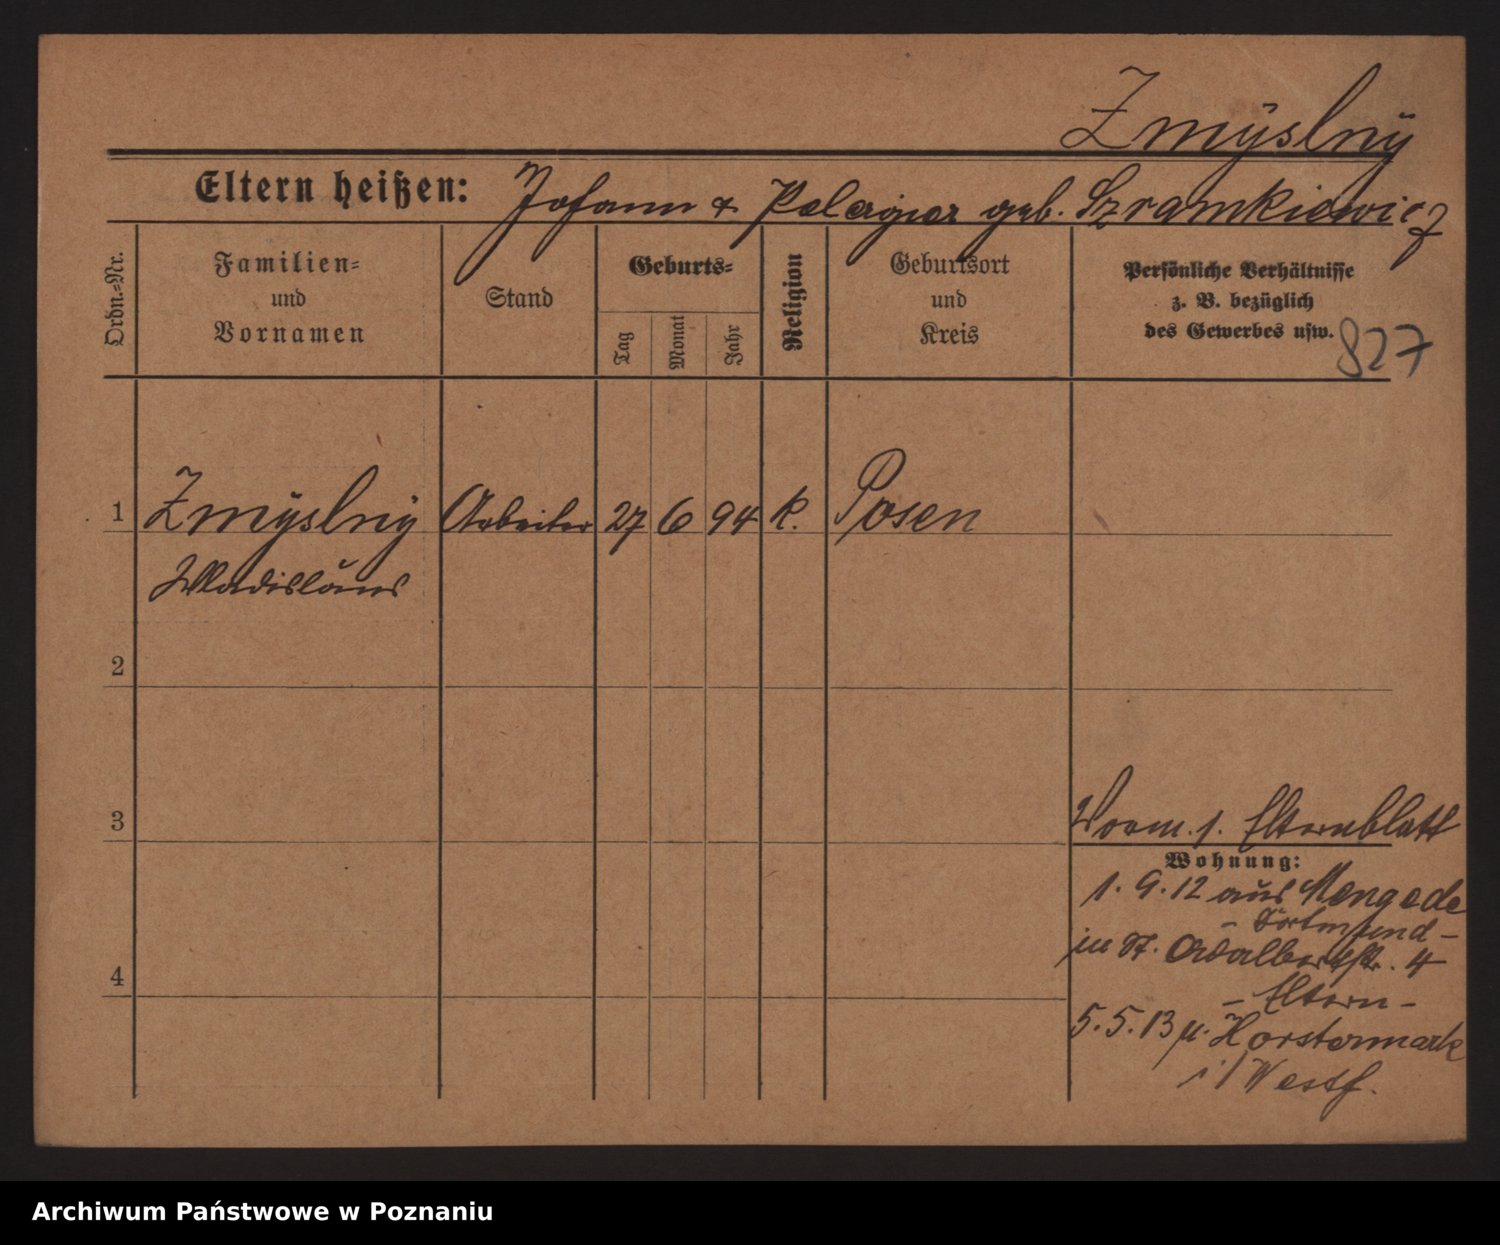 Zmÿslnÿ
Eltern heißen: Johann & Pelagia geb. Szramkiewicz
Ordn.-Nr.
Familien-
und
Vornamen
Stand
Geburts-
Tag
Monat
Jahr
Religion
Geburtsort
und
Kreis
Persönliche Verhältnisse
z. B. bezüglich
des Gewerbes usw.
827
1 Zmÿslnÿ Arbeiter 27 6 94 k. Posen
Wladislaus
2
3
Vorm. s. Elternblatt
Wohnung:
1. 9. 12 aus Mengede
- Dortmund -
in St. Adalbertstr. 4
- Eltern -
4
5. 5. 13 n. Horstermark
i/Westf.
Archiwum Państwowe w Poznaniu